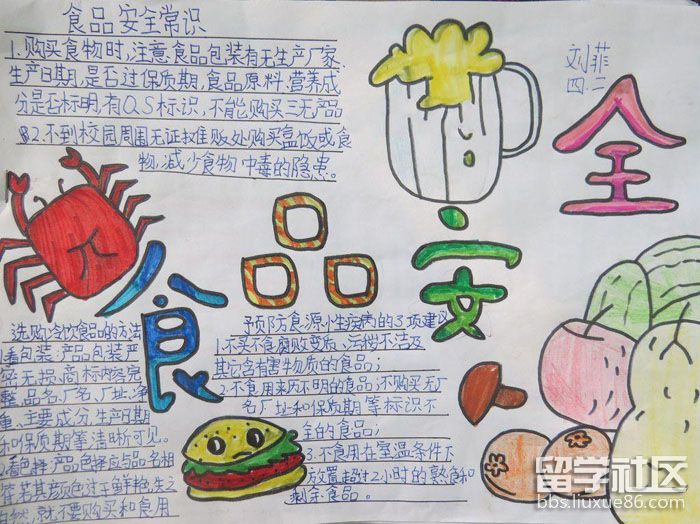 食品安全常识
1.购买食物时,注意食品包装有无生产厂家,
生产日期,是否过保质期,食品原料.营养成
分是否标明,有QS标识,不能购买三无产品
2.不到校园周围无证摊贩处购买盒饭或食
物,减少食物中毒的隐患。
刘菲
四.二
食品安全
选购冷饮食品的方法
1看包装:产品包装严
密无损,商标内容完
整,品名、厂名、厂址、净
重、主要成分生产日期
和保质期等清晰可见。
2看色择:产品色择应与品名相
若其颜色过于鲜艳,
自然,就不要购买和食用
预防食源性疾病的3项建议
1.不买不食腐败变质、污秽不洁及
其它含有害物质的食品;
2.不食用来历不明的食品;不购买无厂
名厂址和保质期等标识不
全的食品;
3.不食用在室温条件下
放置超过2小时的熟食和
剩余食品。
留学社区
bbs.liuxue86.com